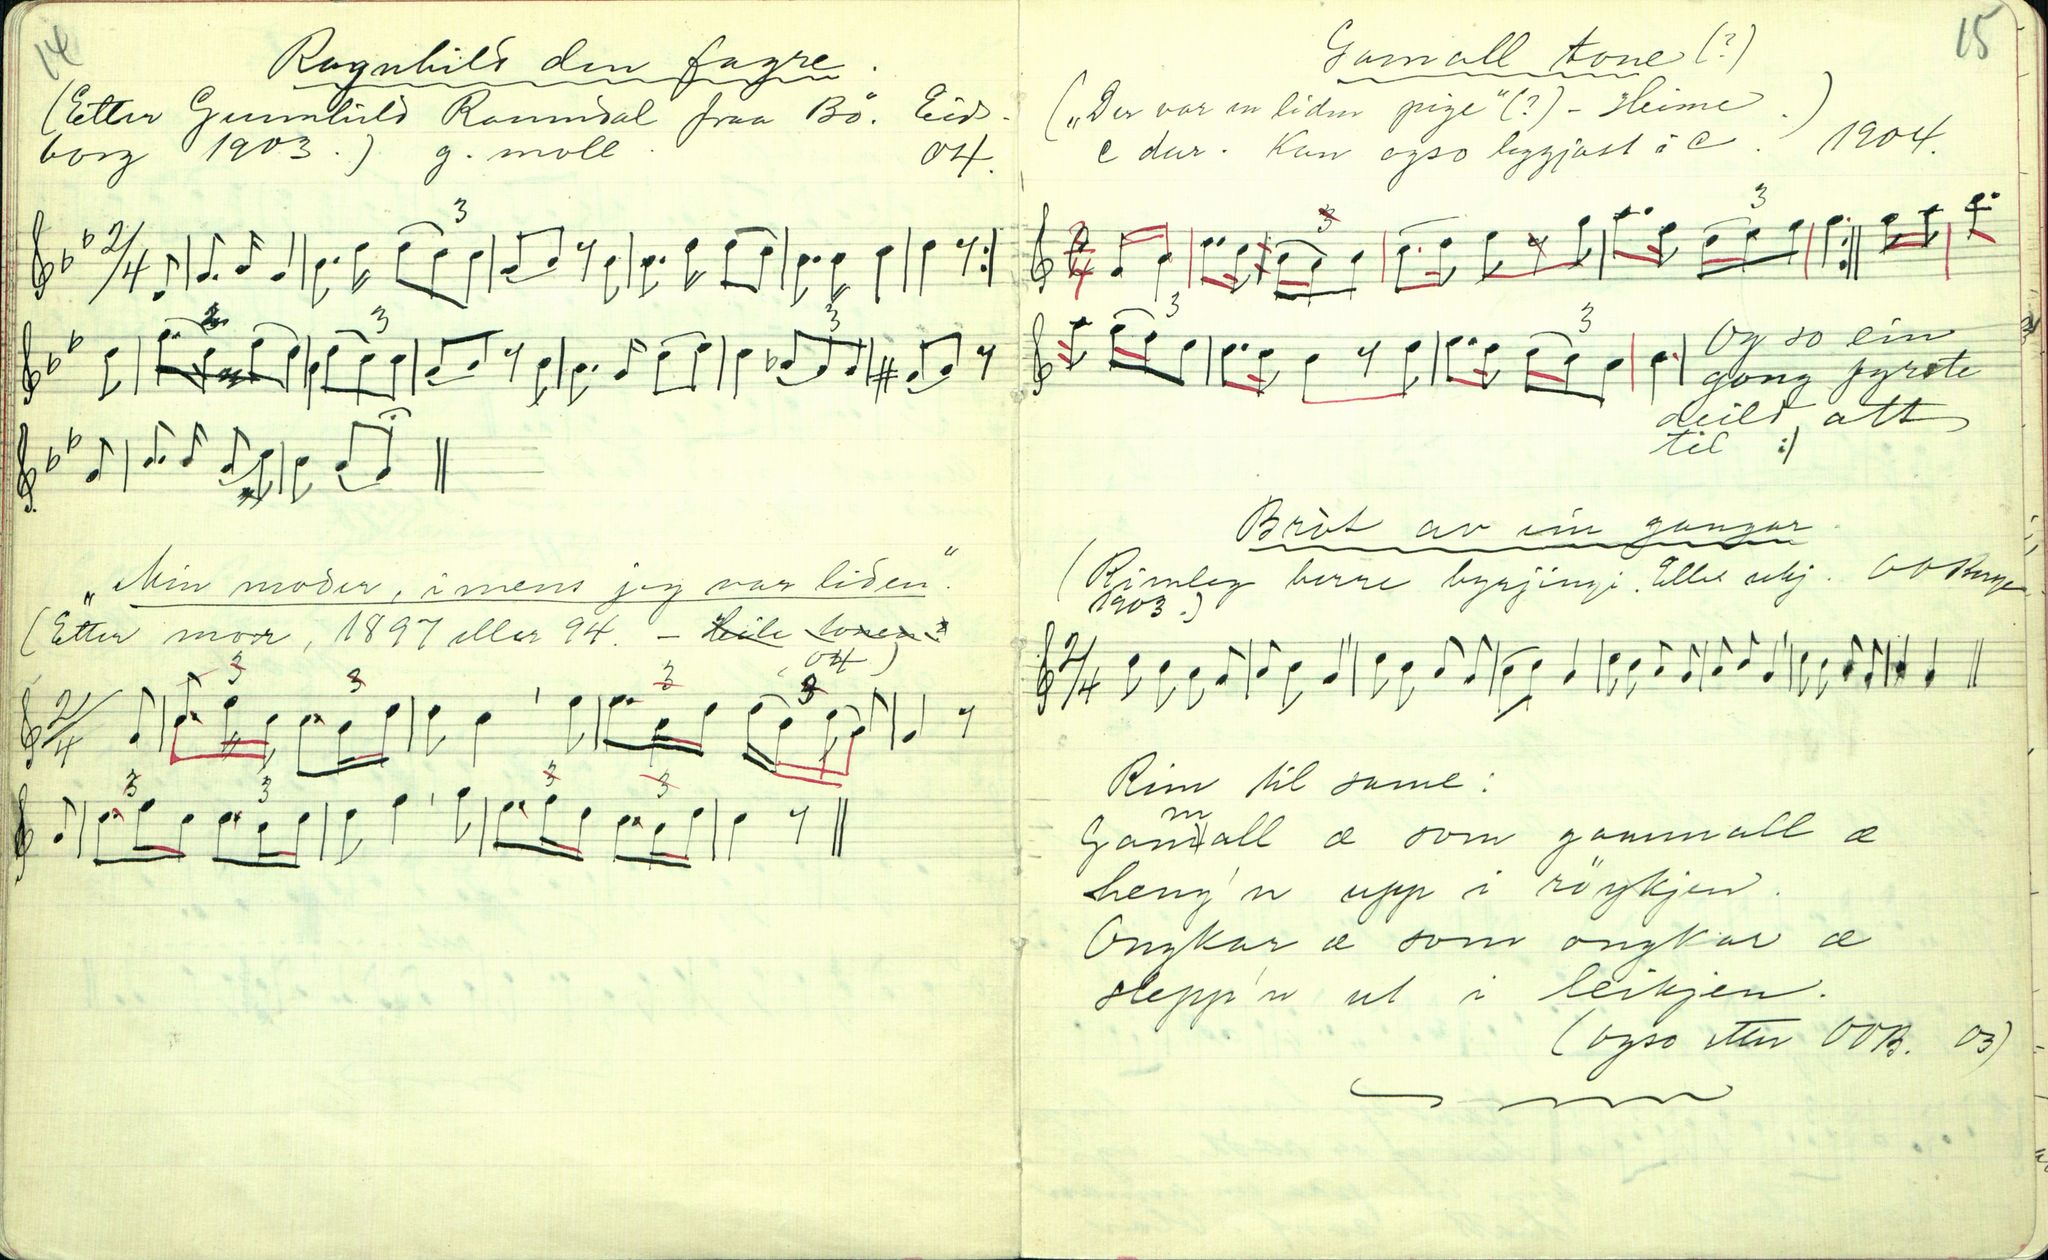 14
Ragnhild den fagre.
(Etter Gunnhild Ramndal fraa Bö. Eids-
borg 1903.) g. moll. 04.
2/4
3
3
3
"Min moder, imens jeg var liden".
(Etter mor, 1897 eller 94. – Heile tonen?
04.)
2/4
3
3
3
3
3
3
3
3
15
Gamall tone (?)
("Der var en liden pige" (?) – Heime.)
C dur. Kan ogso leggjast i C. 1904.
2/4
3
3
3
3
Og so ein
gong fyrste
deild att
til :|
Bròt av ein gangar.
(Rimleg berre byrjingi. Elles ukj. OO
1903.)
2/4
Rim til same:
m
Gamall æ som gammall æ
heng'n upp i röykjen.
Ongkar æ som ongkar æ
slepp'n ut i leikjen.
(ogso etter OOB. 03)